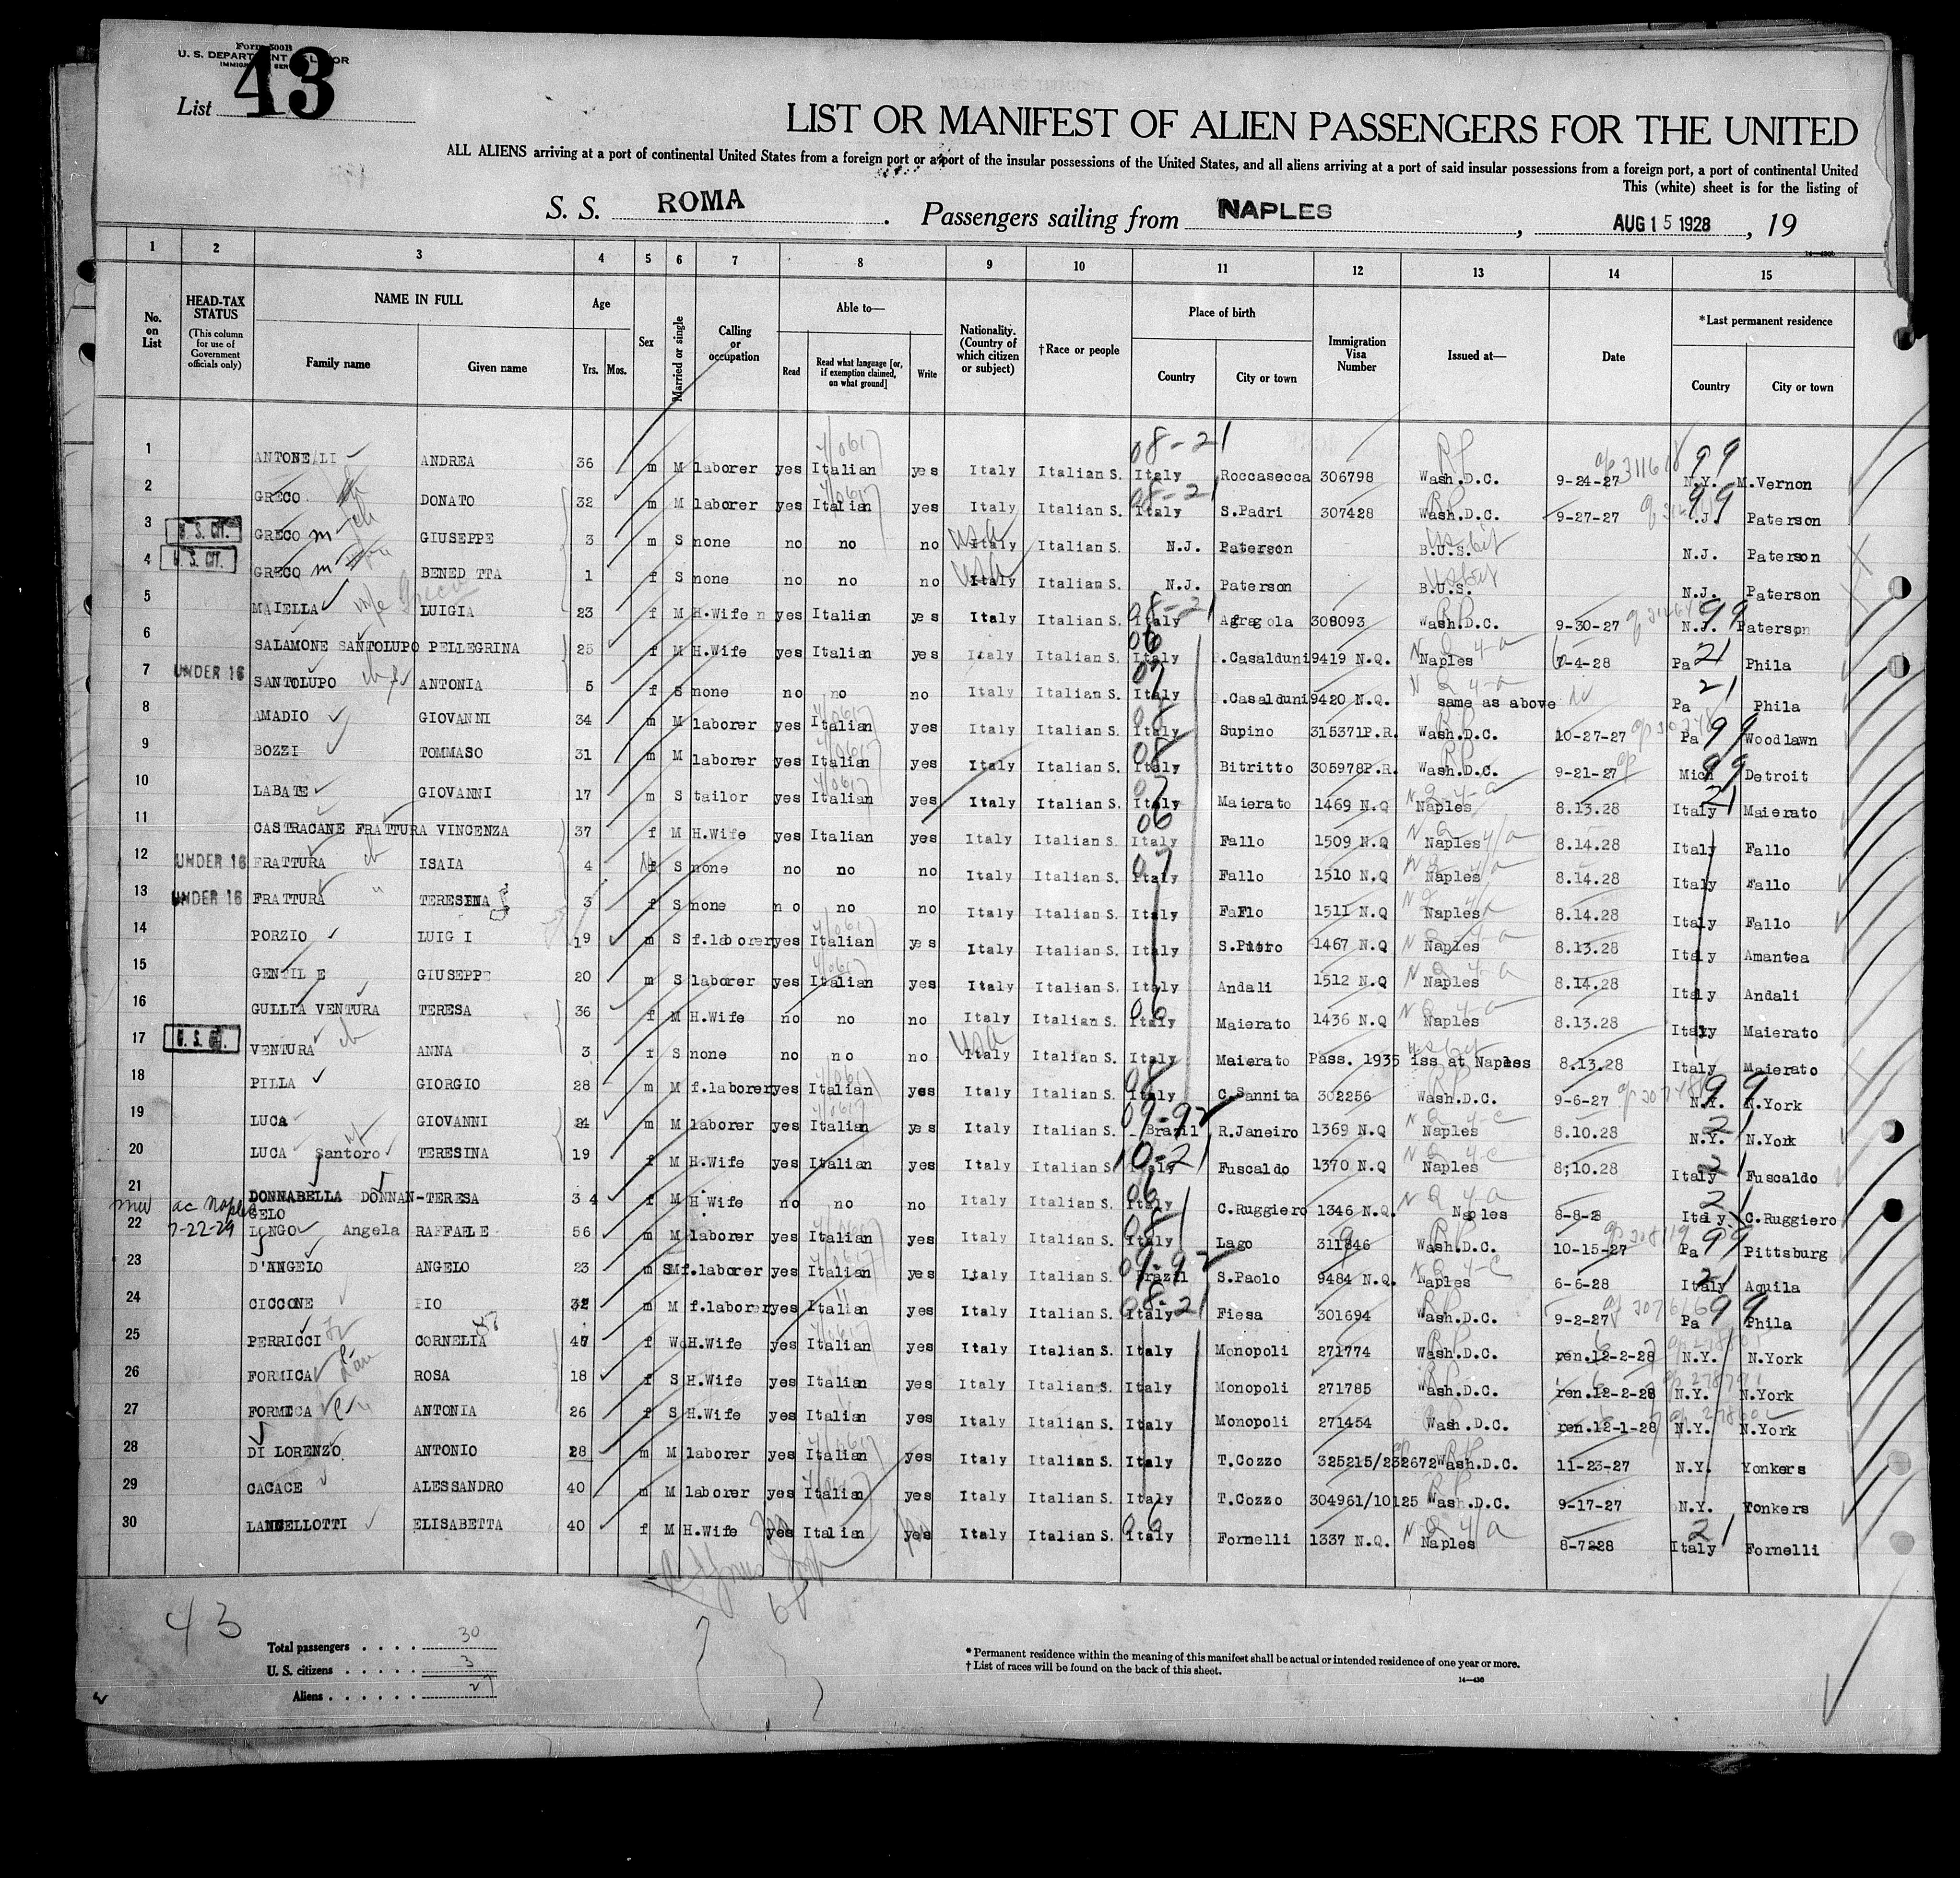 Form 500B
U. S. DEPARTMENT OF LABOR
IMMIGRATION SERVICE
List 43
LIST OR MANIFEST OF ALIEN PASSENGERS FOR THE UNITED
ALL ALIENS arriving at a port of continental United States from a foreign port or a port of the insular possessions of the United States, and all aliens arriving at a port of said insular possessions from a foreign port, a port of continental United
This (white) sheet is for the listing of
S. S. ROMA. Passengers sailing from NAPLES, AUG 15 1928, 19
14-430b
1 2 3 4 5 6 7 8 9 10 11 12 13 14 15
No. on List
HEAD-TAX STATUS (This column for use of Government officials only)
NAME IN FULL Family name Given name
Age Yrs. Mos.
Sex
Married or single
Calling or occupation
Able to— Read Read what language [or, if exemption claimed, on what ground] Write
Nationality. (Country of which citizen or subject)
†Race or people
Place of birth Country City or town
Immigration Visa Number
Issued at—
Date
*Last permanent residence Country City or town
1 ANTONELLI ANDREA 36 m M laborer yes Italian yes Italy Italian S. Italy Roccasecca 306798 Wash.D.C. 9-24-27 N.Y. M.Vernon
2 GRECO DONATO 32 m M laborer yes Italian yes Italy Italian S. Italy S.Padri 307428 Wash.D.C. 9-27-27 N.J. Paterson
3 U. S. CIT. GRECO GIUSEPPE 3 m S none no no no Italy USA Italian S. N.J. Paterson B.U.S. N.J. Paterson
4 U. S. CIT. GRECO BENED TTA 1 f S none no no no Italy USA Italian S. N.J. Paterson B.U.S. N.J. Paterson
5 MAIELLA wife Greco LUIGIA 23 f M H.Wife n yes Italian yes Italy Italian S. Italy Agragola 308093 Wash.D.C. 9-30-27 N.J. Paterson
6 SALAMONE SANTOLUPO PELLEGRINA 25 f M H.Wife yes Italian yes Italy Italian S. Italy .Casalduni 9419 N.Q. Naples 7-4-28 Pa Phila
7 UNDER 16 SANTOLUPO ANTONIA 5 f S none no no no Italy Italian S. Italy .Casalduni 9420 N.Q. same as above Pa Phila
8 AMADIO GIOVANNI 34 m M laborer yes Italian yes Italy Italian S. Italy Supino 315371P.R. Wash.D.C. 10-27-27 Pa Woodlawn
9 BOZZI TOMMASO 31 m M laborer yes Italian yes Italy Italian S. Italy Bitritto 305978P.R. Wash.D.C. 9-21-27 Mich Detroit
10 LABATE GIOVANNI 17 m S tailor yes Italian yes Italy Italian S. Italy Maierato 1469 N.Q Naples 8.13.28 Italy Maierato
11 CASTRACANE FRATTURA VINCENZA 37 f M H.Wife yes Italian yes Italy Italian S. Italy Fallo 1509 N.Q Naples 8.14.28 Italy Fallo
12 UNDER 16 FRATTURA ISAIA 4 S none no no no Italy Italian S. Italy Fallo 1510 N.Q Naples 8.14.28 Italy Fallo
13 UNDER 16 FRATTURA TERESINA 3 f S none n o no no Italy Italian S. Italy Fallo 1511 N.Q Naples 8.14.28 Italy Fallo
14 PORZIO LUIG I 19 m S f.laborer yes Italian yes Italy Italian S. Italy S.Pietro 1467 N.Q Naples 8.13.28 Italy Amantea
15 GENTIL E GIUSEPPE 20 m S laborer yes Italian yes Italy Italian S. Italy Andali 1512 N.Q Naples 8.14.28 Italy Andali
16 GULLIA VENTURA TERESA 36 f M H.Wife no no no Italy Italian S. Italy Maierato 1436 N.Q Naples 8.13.28 Italy Maierato
17 U. S. CIT. VENTURA ANNA 3 f S none no no no Italy USA Italian S. Italy Maierato Pass. 1935 iss at Naples 8.13.28 Italy Maierato
18 PILLA GIORGIO 28 m M f.laborer yes Italian yes Italy Italian S. Italy C.Sannita 302256 Wash.D.C. 9-6-27 N.Y. N.York
19 LUCA GIOVANNI 24 m M laborer yes Italian yes Italy Italian S. Brazil R.Janeiro 1369 N.Q Naples 8.10.28 N.Y. N.York
20 LUCA Santoro TERESINA 19 f M H.Wife yes Italian yes Italy Italian S. Italy Fuscaldo 1370 N.Q Naples 8;10.28 Italy Fuscaldo
21 DONNABELLA DONNAN-TERESA 34 f M H.Wife no no no Italy Italian S. Italy C.Ruggiero 1346 N.Q. Naples 8-8-28 Italy C.Ruggiero
GELO
ac Naples
7-22-29
22 LONGO Angela RAFFAELE 56 m M laborer yes Italian yes Italy Italian S. Italy Lago 311846 Wash.D.C. 10-15-27 Pa Pittsburg
23 D'ANGELO ANGELO 23 m SM f.laborer yes Italian yes Italy Italian S. Brazil S.Paolo 9484 N.Q. Naples 6-6-28 Italy Aquila
24 CICCONE PIO 32 m M f.laborer yes Italian yes Italy Italian S. Italy Fiesa 301694 Wash.D.C. 9-2-27 Pa Phila
25 PERRICCI CORNELIA 47 f Wd H.Wife yes Italian yes Italy Italian S. Italy Monopoli 271774 Wash.D.C. ren.12-2-28 N.Y. N.York
26 FORMICA ROSA 18 f S H.Wife yes Italian yes Italy Italian S. Italy Monopoli 271785 Wash.D.C. ren.12-2-28 N.Y. N.York
27 FORMICA ANTONIA 26 f S H.Wife yes Italian yes Italy Italian S. Italy Monopoli 271454 Wash.D.C. ren.12-1-28 N.Y. N.York
28 DI LORENZO ANTONIO 28 m M laborer yes Italian yes Italy Italian S. Italy T.Cozzo 325215/232672 Wash.D.C. 11-23-27 N.Y. Yonkers
29 CACACE ALESSANDRO 40 m M laborer yes Italian yes Italy Italian S. Italy T.Cozzo 304961/10125 Wash.D.C. 9-17-27 N.Y. Yonkers
30 LANGELLOTTI ELISABETTA 40 f M H.Wife yes Italian yes Italy Italian S. Italy Fornelli 1337 N.Q. Naples 8-7-28 Italy Fornelli
43
Total passengers . . . . 30
U. S. citizens . . . . . 3
Aliens . . . . . . 27
* Permanent residence within the meaning of this manifest shall be actual or intended residence of one year or more.
† List of races will be found on the back of this sheet.
14-430